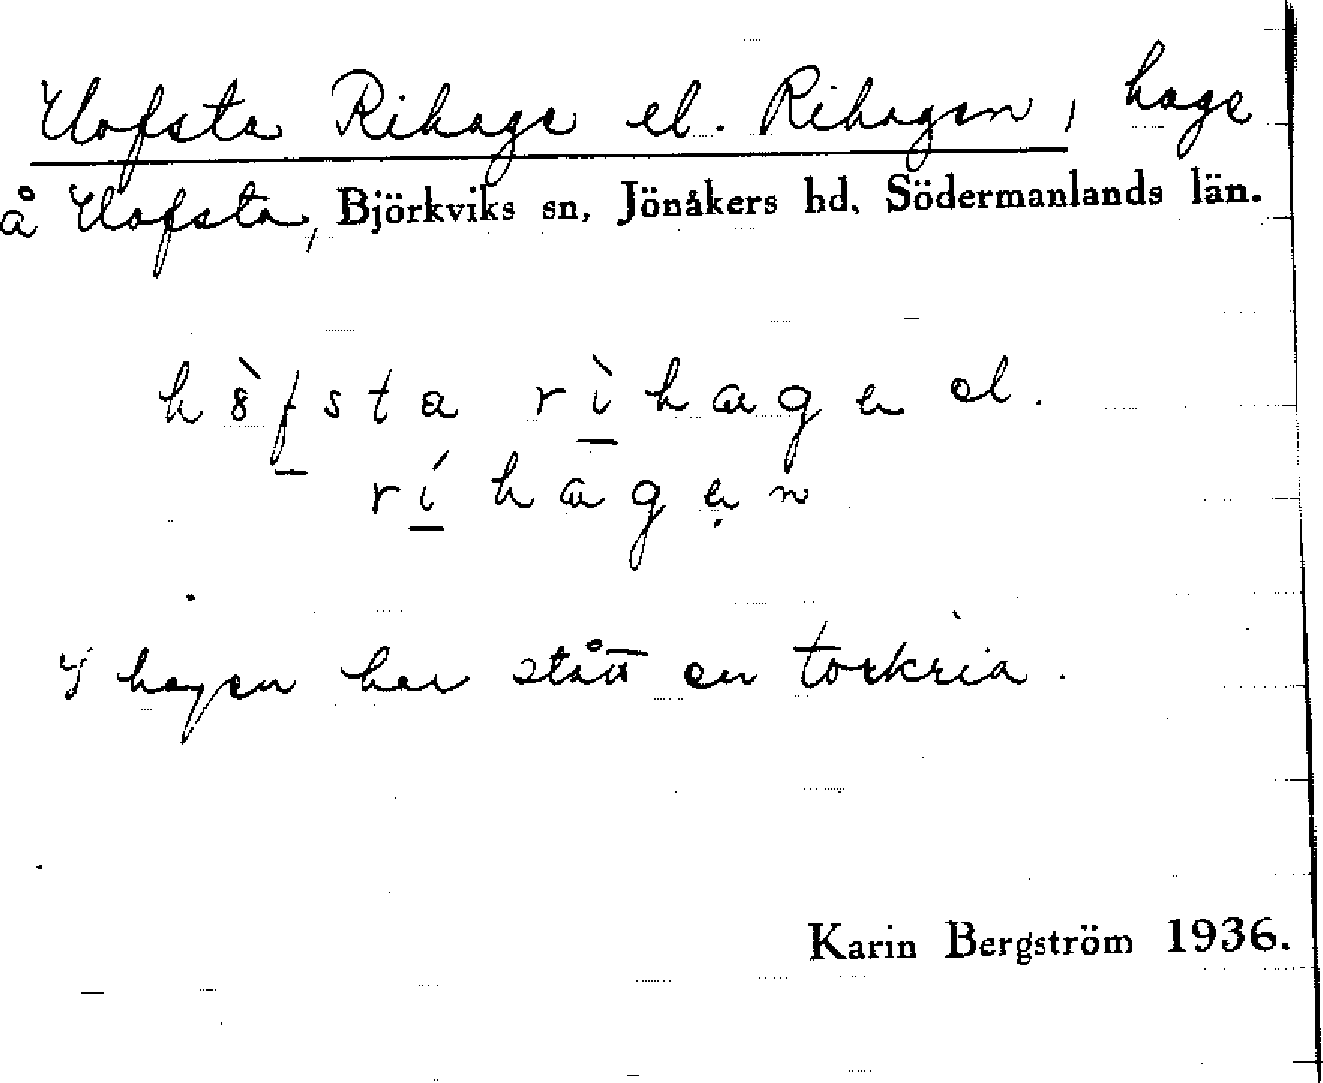 Hofsta Rihage el. Rihagen, hage
å Hofsta, Björkviks sn, Jönåkers hd, Södermanlands län.
hòfsta rìhagen el.
ríhàgen
I hagen har stått en torkria.
Karin Bergström 1936.